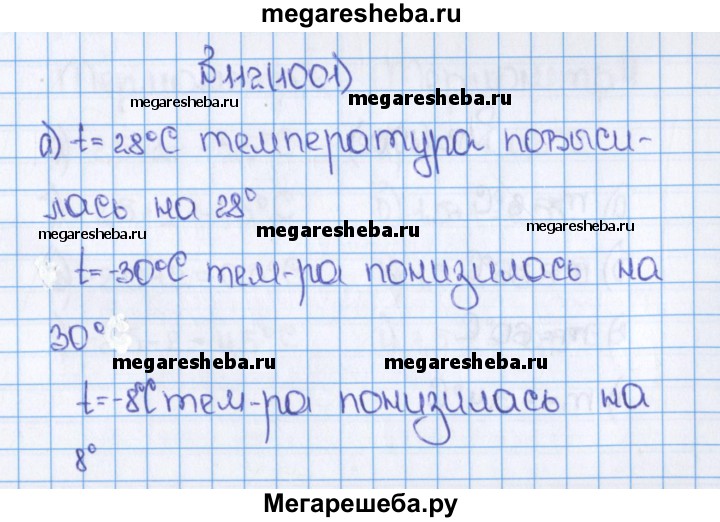 megaresheba.ru
В 112(1001)
megaresheba.ru
megaresheba.ru
а) t = 28°C температура повыси-
лась на 28°
megaresheba.ru
megaresheba.ru
megaresheba.ru
t = -30°C тем-ра понизилась на
30°
megaresheba.ru
megaresheba.ru
t = -8°C тем-ра понизилась на
8°
Мегарешеба.ру